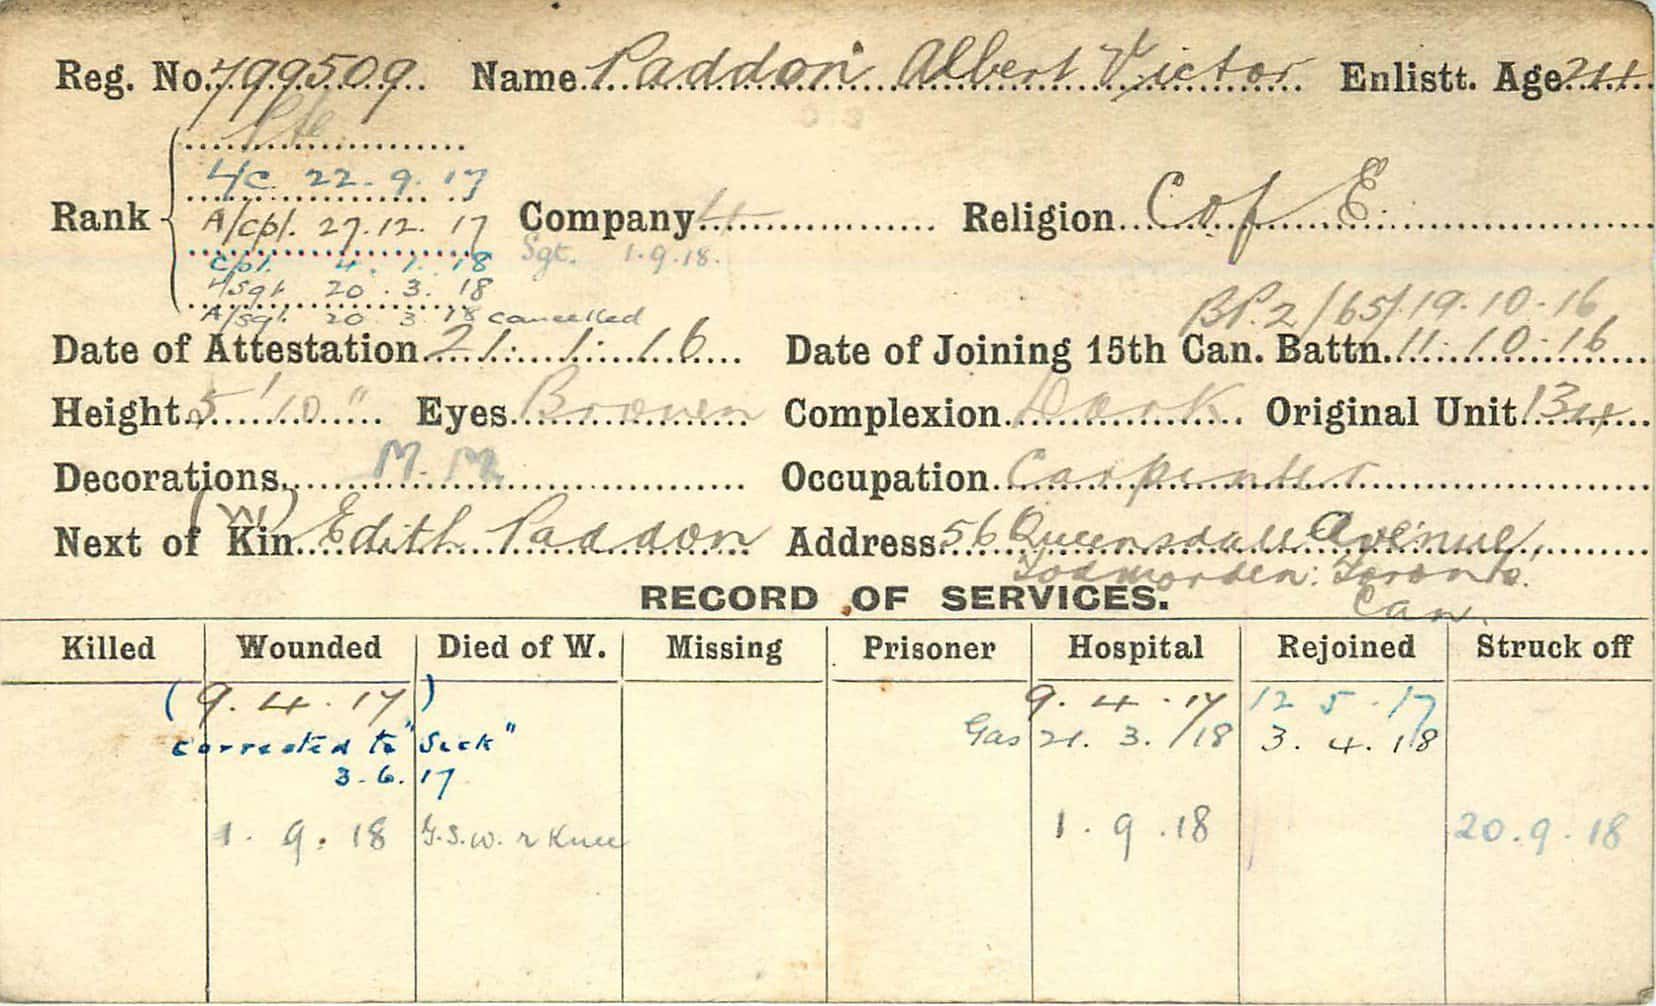 Reg. No. 799509. Name Paddon Albert Victor Enlistt. Age 24
Pte
L/C. 22. 9. 17
Rank A/Cpl. 27. 12. 17 Company 4 Religion C of E.
Cpl. 4. 1. 18 Sgt. 1.9.18.
L/Sgt 20. 3. 18
A/Sgt. 20 3 18 cancelled BP.2/65/19.10.16
Date of Attestation 21. 1. 16 Date of Joining 15th Can. Battn. 11. 10. 16
Height 5' 10" Eyes Brown Complexion Dark Original Unit 134
Decorations M. M. Occupation Carpenter
(W)
Next of Kin Edith Paddon Address 56 Queensdale Avenue,
Todmorden. Toronto.
Can.
RECORD OF SERVICES.
Killed Wounded Died of W. Missing Prisoner Hospital Rejoined Struck off
(9. 4. 17) 9. 4. 17 12 5. 17
corrected to "Sick" Gas 21. 3. /18 3. 4. 18
3. 6. 17
1. 9. 18 G.S.W. r Knee 1. 9. 18 20. 9. 18